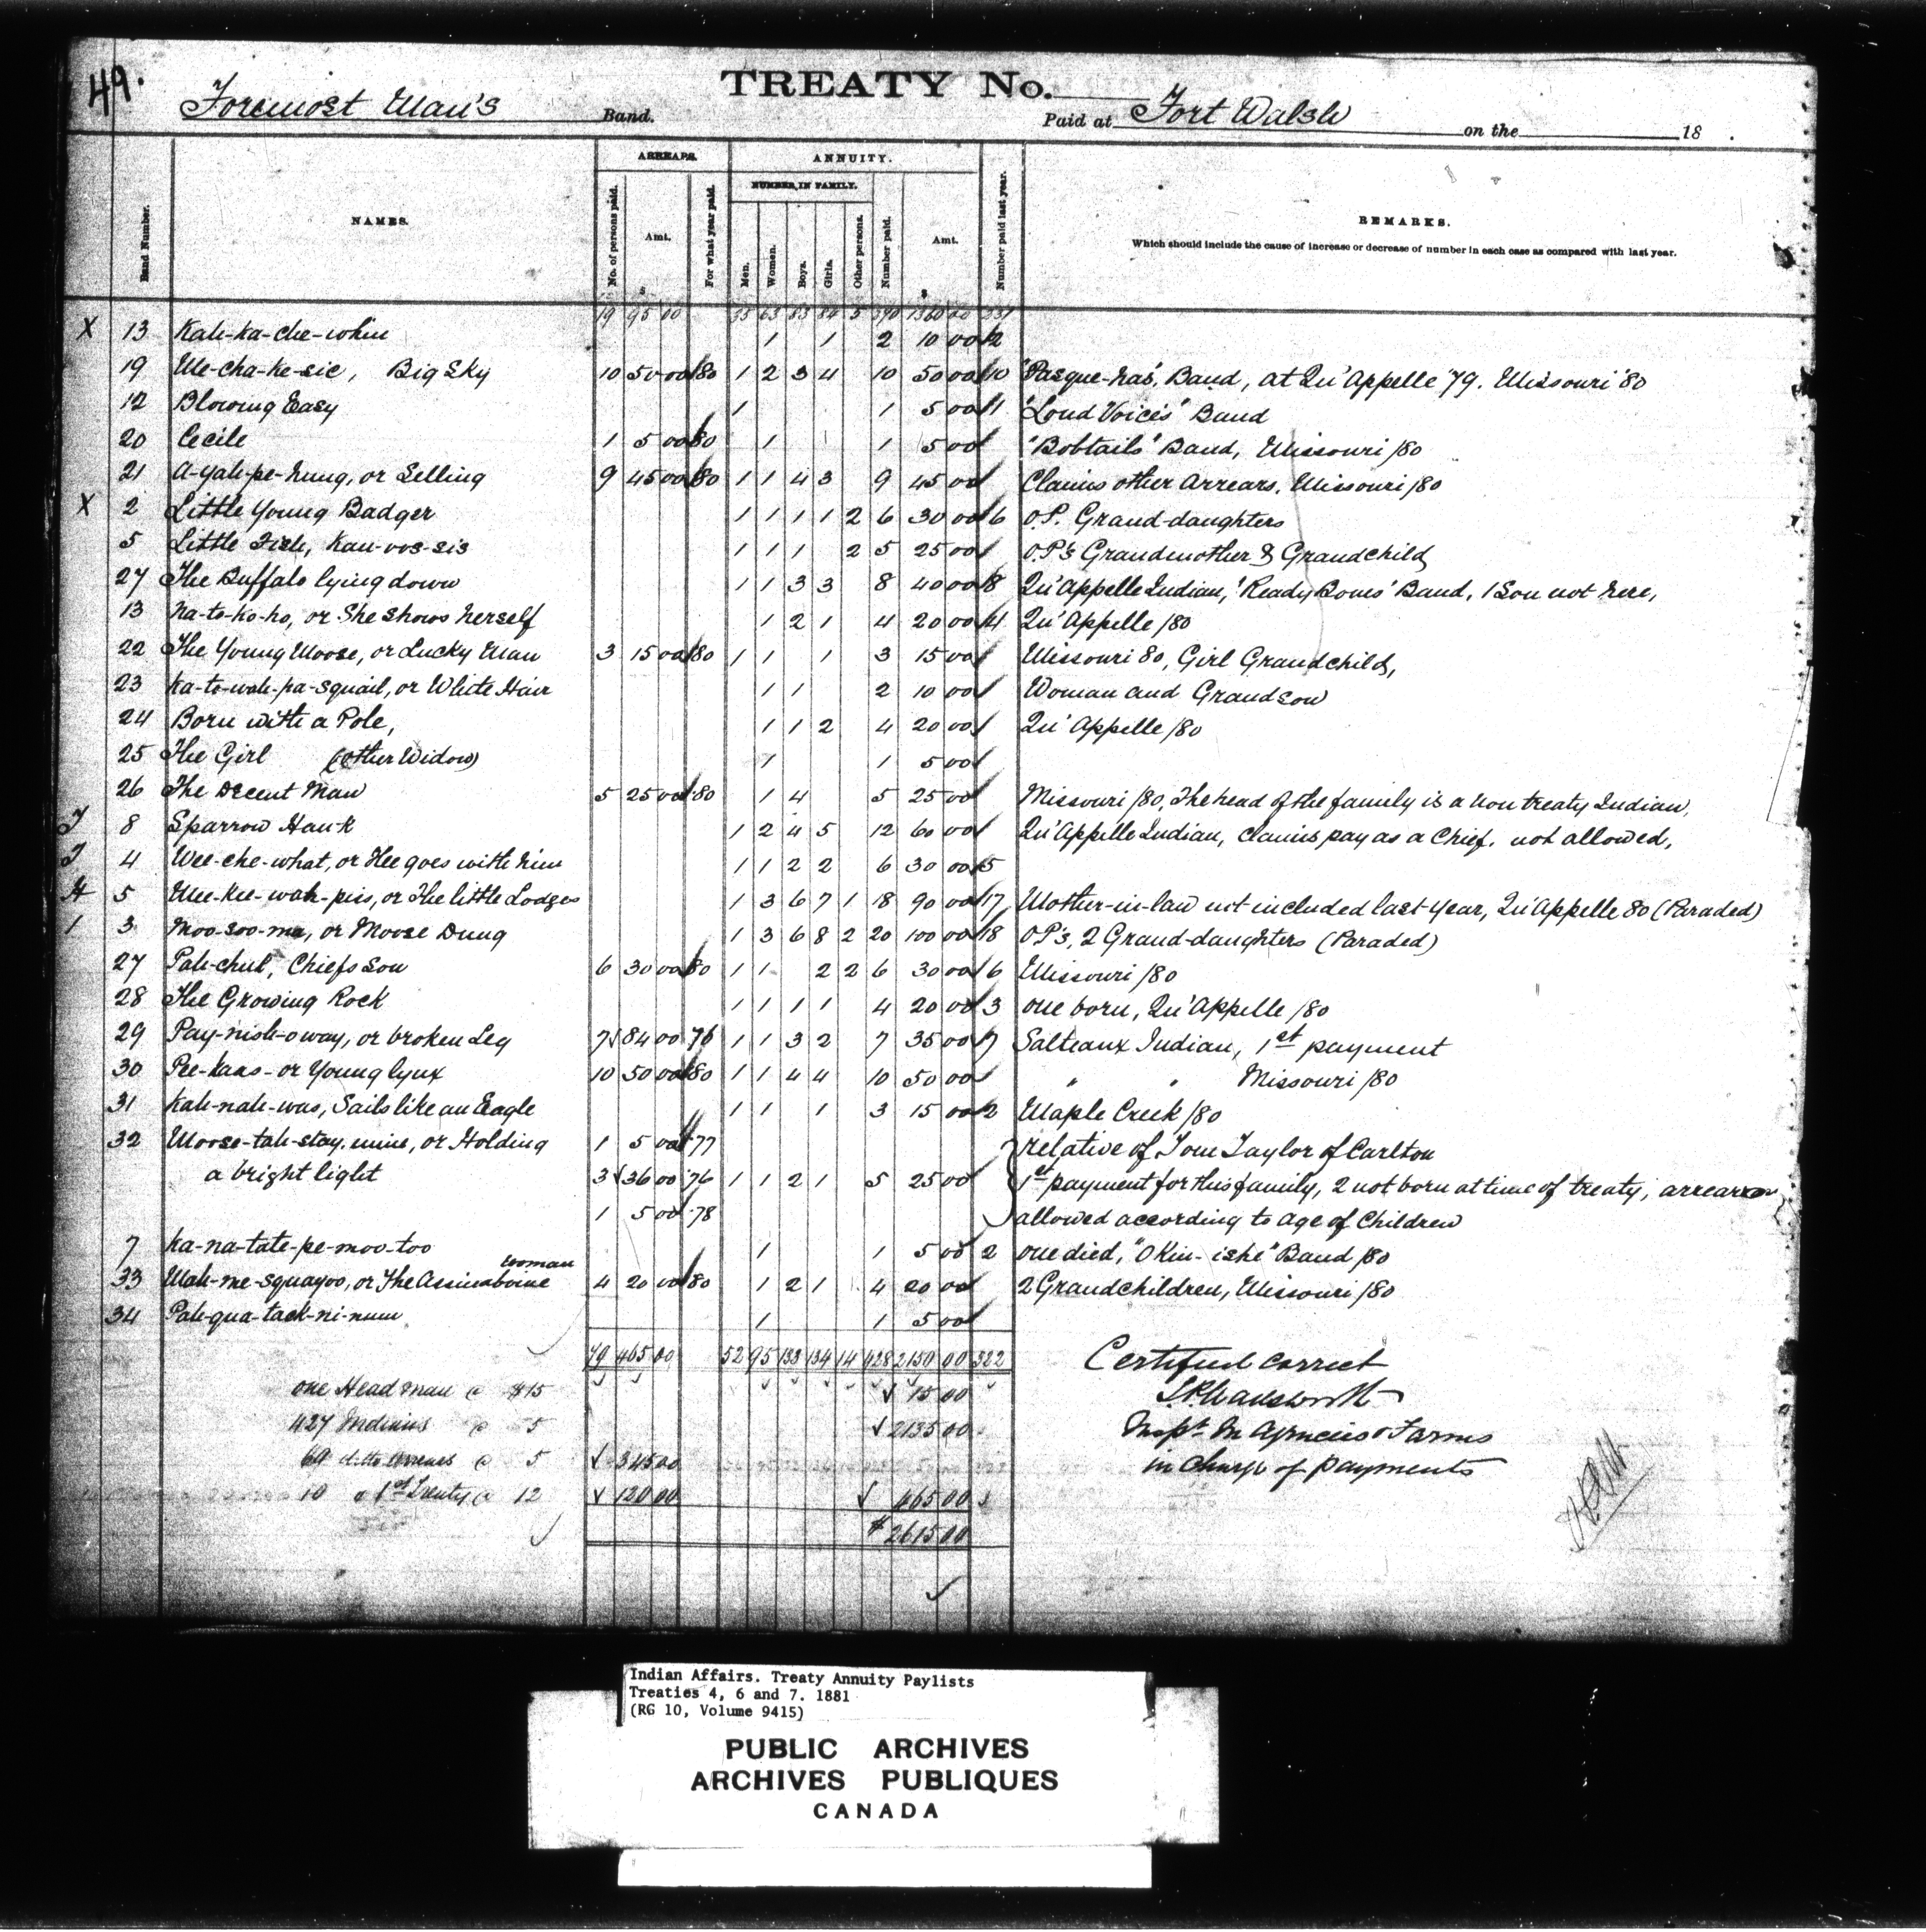 49.
TREATY No.
Foremost Man's Band. Paid at Fort Walsh on the 18 .
ARREARS. ANNUITY.
NUMBER IN FAMILY.
Band Number. NAMES. No. of persons paid. Amt. For what year paid. Men. Women. Boys. Girls. Other persons. Number paid. Amt. Number paid last year. REMARKS.
Which should include the cause of increase or decrease of number in each case as compared with last year.
$ $
19 95 00 35 63 83 84 5 1360 00 231
X 13 Kah-ka-che-whin 1 1 2 10 00 2
19 Me-cha-ke-sic, Big Sky 10 50 00 /80 1 2 3 4 10 50 00 10 "Pasque-has" Band, at Qu'Appelle '79. Missouri '80
12 Blowing Easy 1 1 5 00 1 "Loud Voices" Band
20 Cecile 1 5 00 80 1 1 5 00 "Bobtails" Band, Missouri /80
21 A-yah-pe-nung, or Selling 9 45 00 80 1 1 4 3 9 45 00 Claims other Arrears, Missouri /80
X 2 Little Young Badger 1 1 1 1 2 6 30 00 6 O.P. Grand-daughters
5 Little Fish, Kau-vos-sis 1 1 1 2 5 25 00 O.P's Grandmother & Grandchild
27 The Buffalo lying down 1 1 3 3 8 40 00 8 Qu'Appelle Indian, "Ready Bows" Band, 1 Son not here,
13 Na-to-ho-ho, or She shows herself 1 2 1 4 20 00 4 Qu'Appelle /80
22 The Young Moose, or Lucky Man 3 15 00 /80 1 1 1 3 15 00 Missouri 80, Girl Grandchild,
23 Ka-to-wah-pa-squail, or White Hair 1 1 2 10 00 Woman and Grandson
24 Born with a Pole, 1 1 2 4 20 00 Qu'Appelle /80
25 The Girl (other Widow) 1 1 5 00
26 The Decent Man 5 25 00 80 1 4 5 25 00 Missouri /80, The head of the family is a non treaty Indian,
T 8 Sparrow Hawk 1 2 4 5 12 60 00 Qu'Appelle Indian, claims pay as a Chief. not allowed,
T 4 Wee-che-what, or Hee goes with him 1 1 2 2 6 30 00 5
H 5 Mee-kee-wah-piss, or The little Lodges 1 3 6 7 1 18 90 00 17 Mother-in-law not included last year, Qu'Appelle 80 (Paraded)
1 3 Moo-soo-me, or Moose Dung 1 3 6 8 2 20 100 00 18 O.P's, 2 Grand-daughters (Paraded)
27 Pah-chul, Chiefs son 6 30 00 80 1 1 2 2 6 30 00 6 Missouri /80
28 The Growing Rock 1 1 1 1 4 20 00 3 one born, Qu'Appelle /80
29 Pay-nish-o way, or broken Leg 7 84 00 76 1 1 3 2 7 35 00 7 Salteaux Indian, 1st payment
30 Pee-kaas- or Young lynx 10 50 00 80 1 1 4 4 10 50 00 " " Missouri /80
31 Kah-nah-was, Sails like an Eagle 1 1 1 3 15 00 2 Maple Creek /80
32 Moose-tah-stay.mine, or Holding 1 5 00 '77 relative of Tom Taylor of Carlton
a bright light 3 36 00 '76 1 1 2 1 5 25 00 1st payment for this family, 2 not born at time of treaty, arrears
1 5 00 '78 allowed according to age of Children
7 Ka-na-tate-pe-moo-too 1 1 5 00 2 one died, "Okin-ishe" Band /80
33 Wah-me-squayoo, or The Assinaboine woman 4 20 00 80 1 2 1 4 20 00 2 Grandchildren, Missouri /80
34 Pah-qua-tack-ni-num 1 1 5 00
79 465 00 52 95 133 134 14 428 2150 00 322 Certified correct
one Head man @ $15 15 00 Wadsworth
427 Indians @ 5 2135 00 Inspt In Agencies & Farms
69 ditto arrears @ 5 345 00 in charge of payments
10 " 1st Treaty @ 12 120 00 465 00
$2615 00
Indian Affairs. Treaty Annuity Paylists
Treaties 4, 6 and 7. 1881
(RG 10, Volume 9415)
PUBLIC ARCHIVES
ARCHIVES PUBLIQUES
CANADA